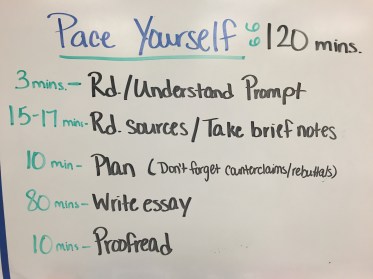 Pace Yourself 120 mins.
3 mins. - Rd./Understand Prompt
15-17 mins - Rd. sources/Take brief notes
10 min - Plan (Don't forget counterclaims/rebuttals)
80 mins - Write essay
10 mins - Proofread